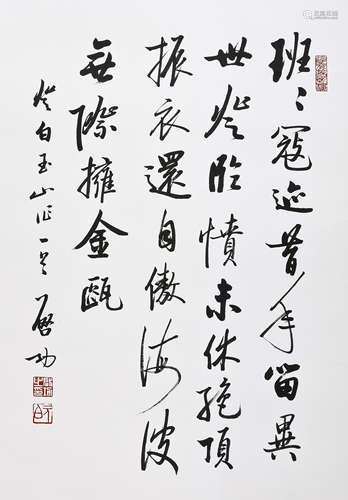 班〻寇迹昔年留異
世登臨憤未休絶頂
振衣還自傲海波
無際擁金甌
登白玉山作一首 啓功